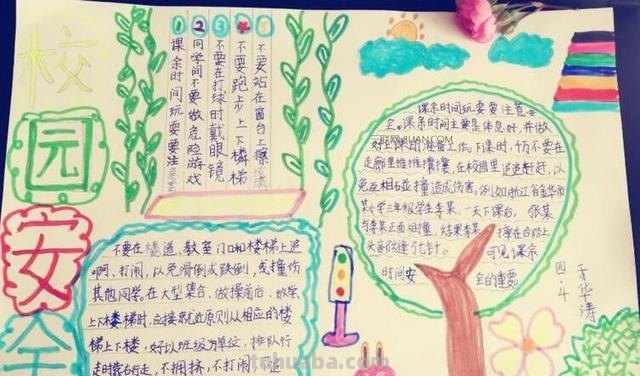 校
园
安
全
1 2 3 4 5
课余时间玩耍要注意安全
同学间不要做危险游戏
不要在打球时戴眼镜
不要跑步上下楼梯
不要站在窗台上擦玻璃
不要在楼道、教室门口和楼梯上追
啊、打闹,以免滑倒或跌倒,或撞伤
其他同学。在大型集合、做操前后、放学
上下楼梯时,应按就近原则从相应的楼
梯上下楼,好以班级为单位,排队行
走时靠右行走,不拥挤,不打闹,不追
课余时间玩耍要注意安
全。课余时间主要是休息好,并做
好上课的准备工作。下课时,切不要在
走廊里推推攘攘,在校园里追追赶赶,以
免互相碰撞造成伤害,例如浙江省金华市
某小学三年级学生李某,一天下课后,张某
与李某正面相撞,结果李某撞在台阶上,
头部缝了七针。可见课余
时间安全的重要
四.4 王华涛
tuhuaba.com